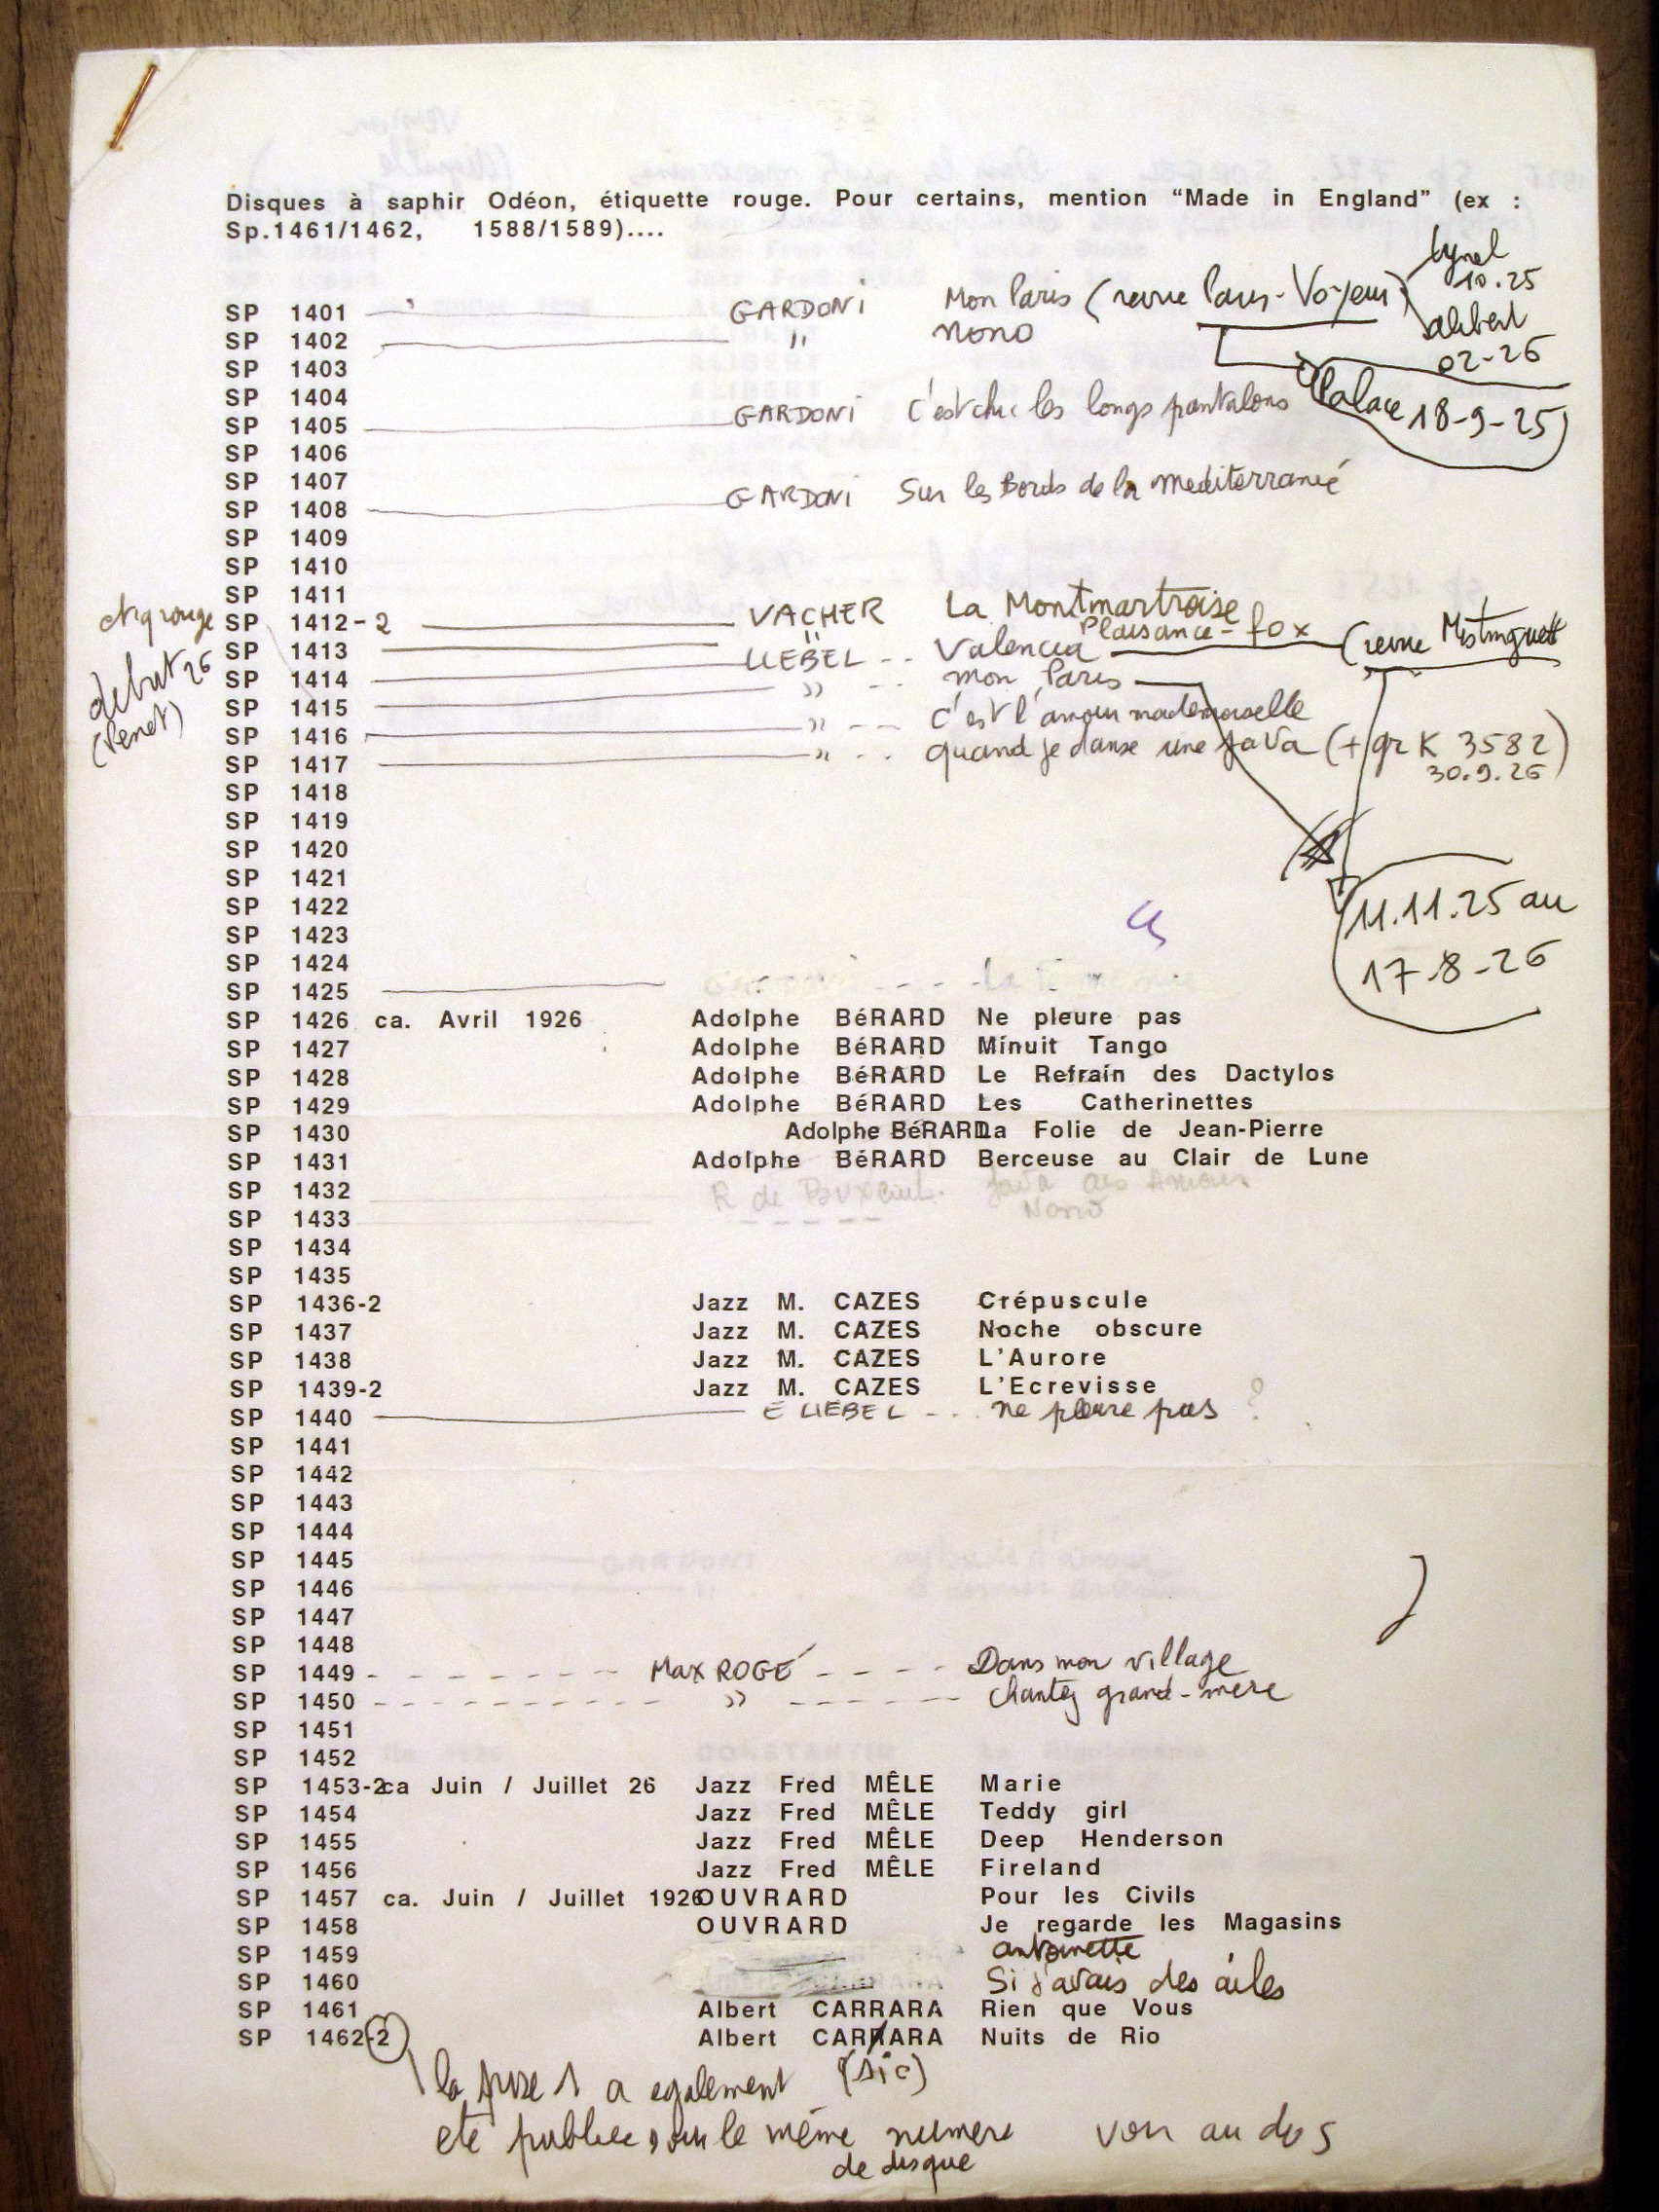 Disques à saphir Odéon, étiquette rouge. Pour certains, mention “Made in England” (ex :
Sp.1461/1462, 1588/1589)....
10.25
SP 1401 GARDONI Mon Paris (revue Paris-Voyeur)
alibert
02-26
SP 1402 " Nono
SP 1403
SP 1404
Palace 18-9-25
SP 1405 GARDONI C'est chic les longs pantalons
SP 1406
SP 1407
SP 1408 GARDONI Sur les Bords de la mediterranée
SP 1409
SP 1410
SP 1411
etiq rouge
debut 26
SP 1412-2 VACHER La Montmartroise
SP 1413 " Plaisance-fox
SP 1414 LIEBEL -- Valencia (revue Mistinguett
SP 1415 " -- mon Paris
SP 1416 " -- C'est l'amour mademoiselle
SP 1417 " -- quand je danse une java (+ gr K 3582
30.9.26)
SP 1418
SP 1419
SP 1420
SP 1421
SP 1422
11.11.25 au
17-8-26
SP 1423
SP 1424
SP 1425
SP 1426 ca. Avril 1926 Adolphe BéRARD Ne pleure pas
SP 1427 Adolphe BéRARD Minuit Tango
SP 1428 Adolphe BéRARD Le Refrain des Dactylos
SP 1429 Adolphe BéRARD Les Catherinettes
SP 1430 Adolphe BéRARD La Folie de Jean-Pierre
SP 1431 Adolphe BéRARD Berceuse au Clair de Lune
SP 1432 R de Java des
SP 1433 Nono
SP 1434
SP 1435
SP 1436-2 Jazz M. CAZES Crépuscule
SP 1437 Jazz M. CAZES Noche obscure
SP 1438 Jazz M. CAZES L'Aurore
SP 1439-2 Jazz M. CAZES L'Ecrevisse
SP 1440 E LIEBEL -- ne pleure pas ?
SP 1441
SP 1442
SP 1443
SP 1444
SP 1445
SP 1446
SP 1447
SP 1448
SP 1449 - - - - - - - Max ROGÉ - - - - Dans mon village
SP 1450 - - - - - - - " - - - - Chantez grand-mère
SP 1451
SP 1452
SP 1453-2 ca Juin / Juillet 26 Jazz Fred MÊLE Marie
SP 1454 Jazz Fred MÊLE Teddy girl
SP 1455 Jazz Fred MÊLE Deep Henderson
SP 1456 Jazz Fred MÊLE Fireland
SP 1457 ca. Juin / Juillet 1926 OUVRARD Pour les Civils
SP 1458 OUVRARD Je regarde les Magasins
SP 1459 antoinette
SP 1460 Si j'avais des ailes
SP 1461 Albert CARRARA Rien que Vous
SP 1462-2 Albert CARRARA Nuits de Rio
(sic)
la prise 1 a egalement
eté publiée sur le même numero
de disque
voir au dos